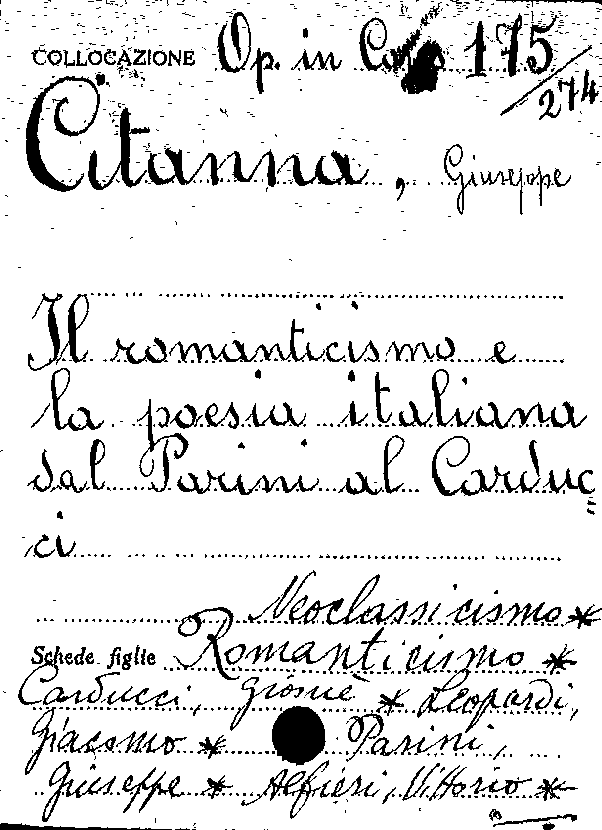 COLLOCAZIONE Op. in Cors 175/274
Citanna, Giuseppe
Il romanticismo e
la poesia italiana
dal Parini al Carduc=
ci
Neoclassicismo *
Schede figlie Romanticismo *
Carducci, Giosuè * Leopardi,
Giacomo * Parini,
Giuseppe * Alfieri, Vittorio *